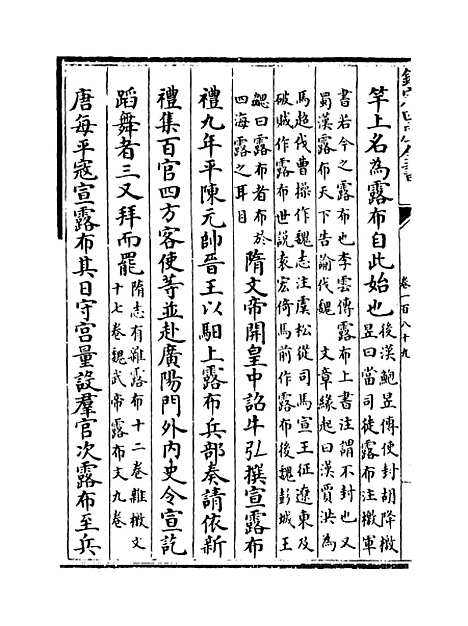 欽定四庫全書
卷一百八十九
竿上名為露布自此始也後漢鮑昱傳使封胡降檄
昱曰當司徒露布注檄軍
書若今之露布也李雲傳露布上書注謂不封也又
蜀漢露布天下告諭伐魏　文章緣起曰漢賈洪為
馬超伐曹操作魏志注虞松從司馬宣王征遼東及
破賊作露布世說袁宏倚馬前作露布後魏彭城王
勰曰露布者布於
四海露之耳目
隋文帝開皇中詔牛弘撰宣露布
禮九年平陳元帥晉王以馹上露布兵部奏請依新
禮集百官四方客使等並赴廣陽門外內史令宣訖
蹈舞者三又拜而罷隋志有雜露布十二卷雜檄文
十七卷魏武帝露布文九卷
唐每平寇宣露布其日守宮量設羣官次露布至兵